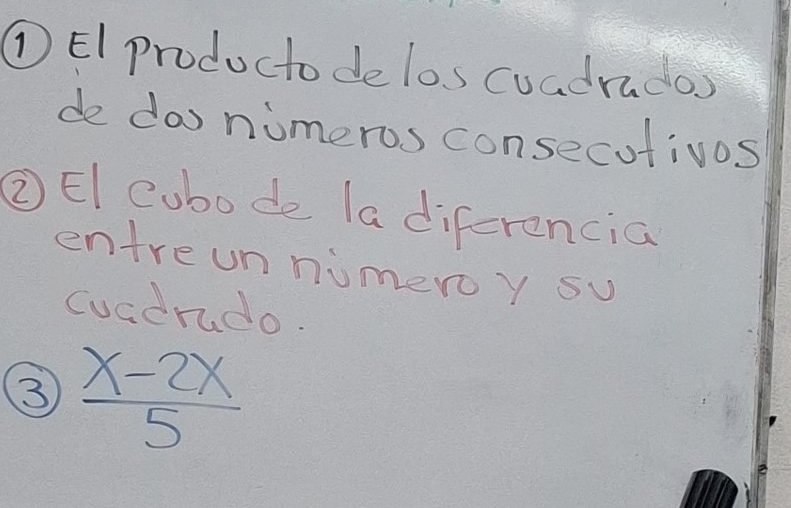 ① El producto de los cuadrados
de dos números consecutivos
② El cubo de la diferencia
entre un número y su
cuadrado.
③ X-2X
5